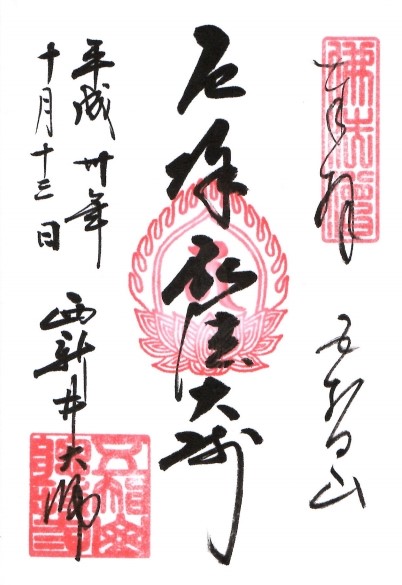 奉拝
五智山
厄除弘法大師
平成卅年
十月十三日
西新井大師
佛法僧